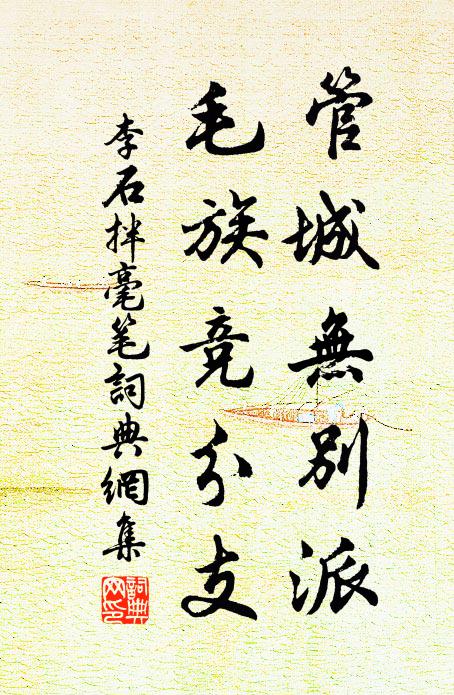 管城無別派
毛族竞分支
李石拌毫笔詞典網集
詞典
网印